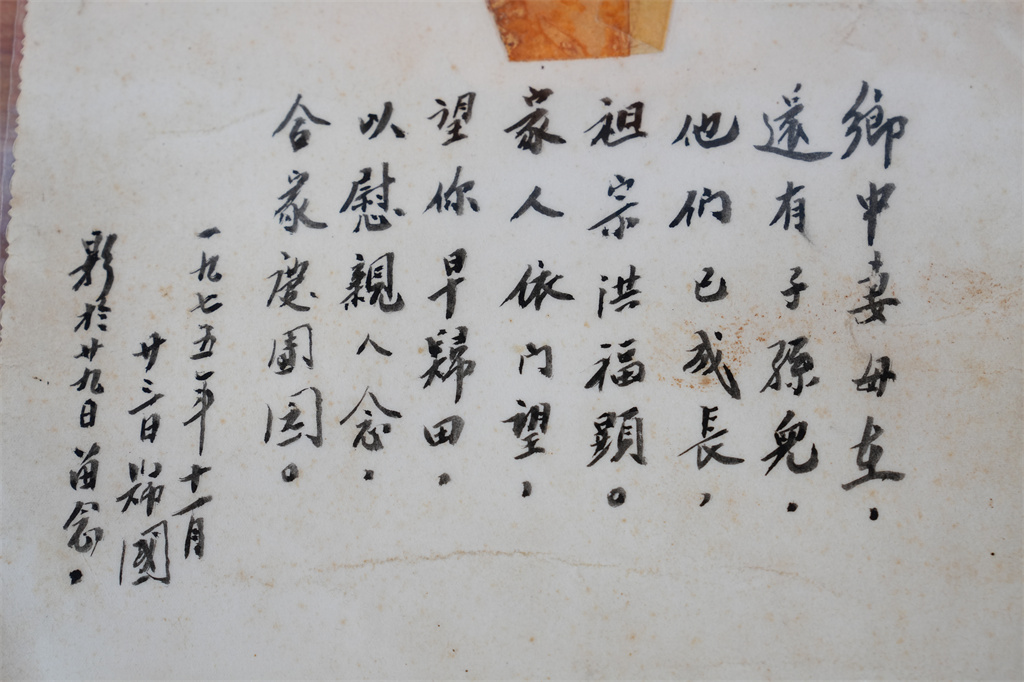 鄉中妻母在，
還有子孫兒．
他們已成長，
祖宗洪福顯。
家人依门望，
望你早歸田，
以慰親人念．
合家慶團圓。
一九七五年十一月
廿三日歸國
影於廿九日留念．